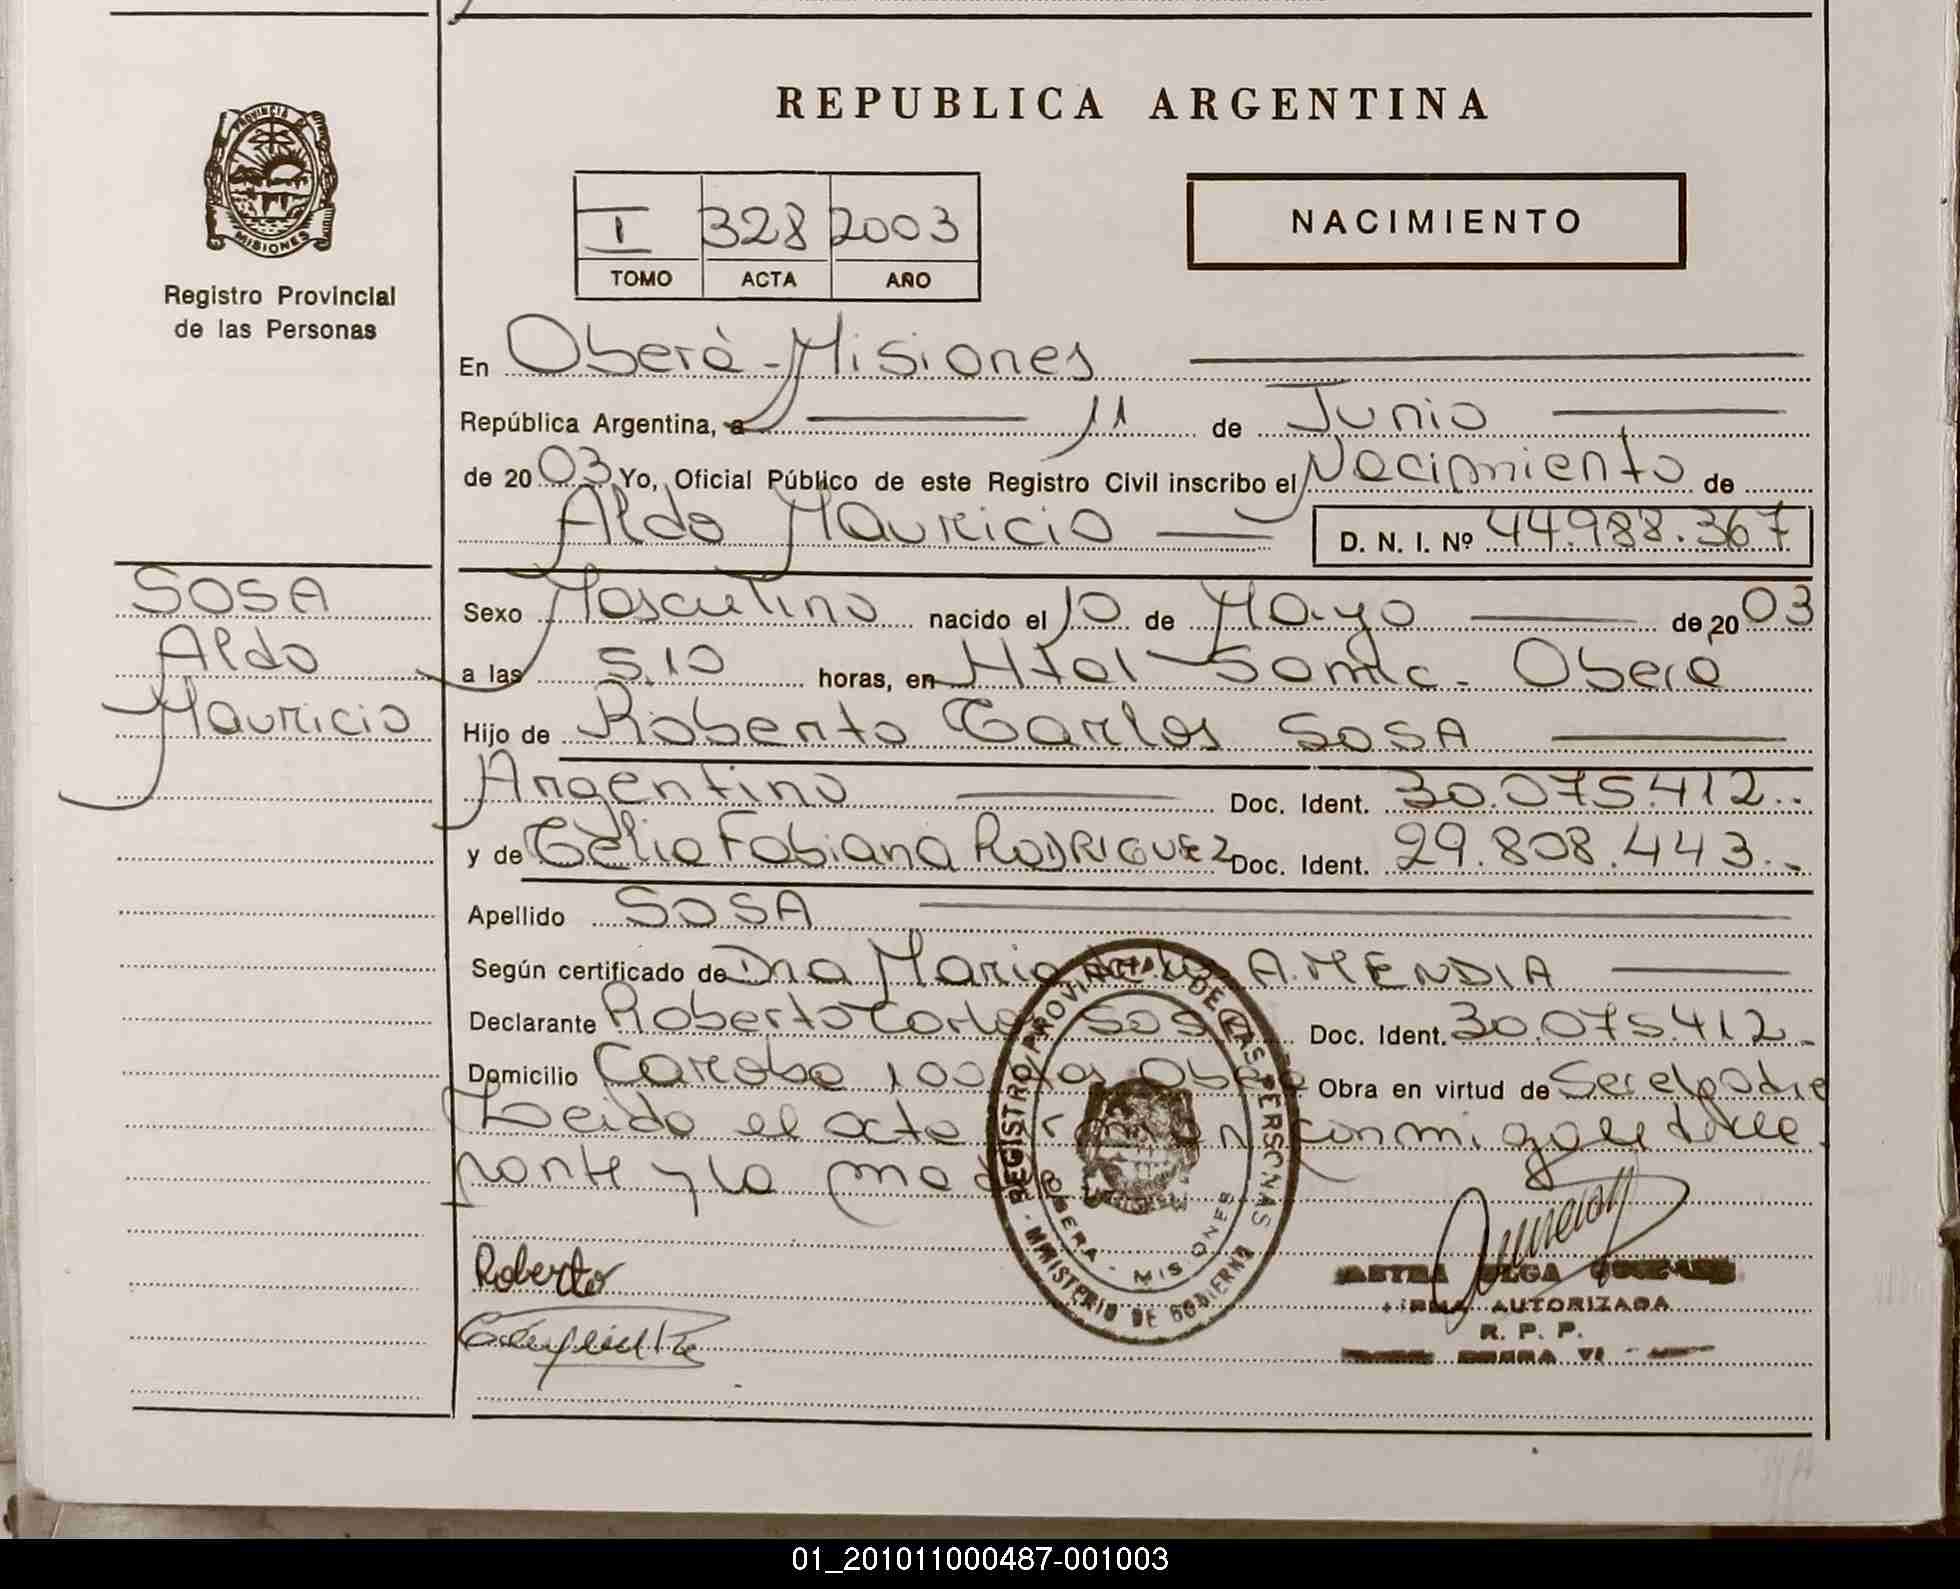 REPUBLICA ARGENTINA
PROVINCIA DE
MISIONES
Registro Provincial
de las Personas
I 328 2003
TOMO ACTA AÑO
NACIMIENTO
En Oberà - Misiones
República Argentina, a 11 de Junio
de 2003 Yo, Oficial Público de este Registro Civil inscribo el Nacimiento de
Aldo Mauricio D. N. I. Nº 44.988.367
SOSA
Aldo
Mauricio
Sexo Masculino nacido el 10 de Mayo de 2003
a las 5.10 horas, en Htal Samic - Obera
Hijo de Roberto Carlos SOSA
Argentino Doc. Ident. 30.075.412
y de Celia Fabiana RODRIGUEZ Doc. Ident. 29.808.443
Apellido SOSA
Según certificado de Dra Maria A. MENDIA
Declarante Roberto Carlos SOSA Doc. Ident. 30.075.412
Domicilio 100 Obera Obra en virtud de
Leido el acta conmigo el
y la madre
REGISTRO PROVINCIAL DE LAS PERSONAS
OBERA - MISIONES
MINISTERIO DE GOBIERNO
Roberto
OLGA
FIRMA AUTORIZADA
R. P. P.
01_201011000487-001003